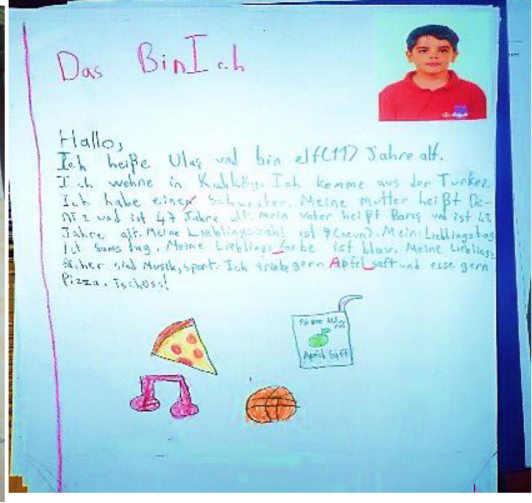 Das Bin Ich
Hallo,
Ich heiße Ulaş und bin elf(11) Jahre alt.
Ich wohne in Kadıköy. Ich komme aus der Türkei.
Ich habe einen Schwester. Meine mutter heißt De-
niz und ist 47 Jahre alt. mein Vater heißt Barış und ist 43
Jahre alt. Meine Lieblingszahl ist 9(neun). Mein Lieblingstag
ist Samstag. Meine Lieblings farbe ist blau. Meine Lieblings
fächer sind Musik, Sport. Ich trinke gern Apfel saft und esse gern
Pizza. Tschoss!
Apfel Saft